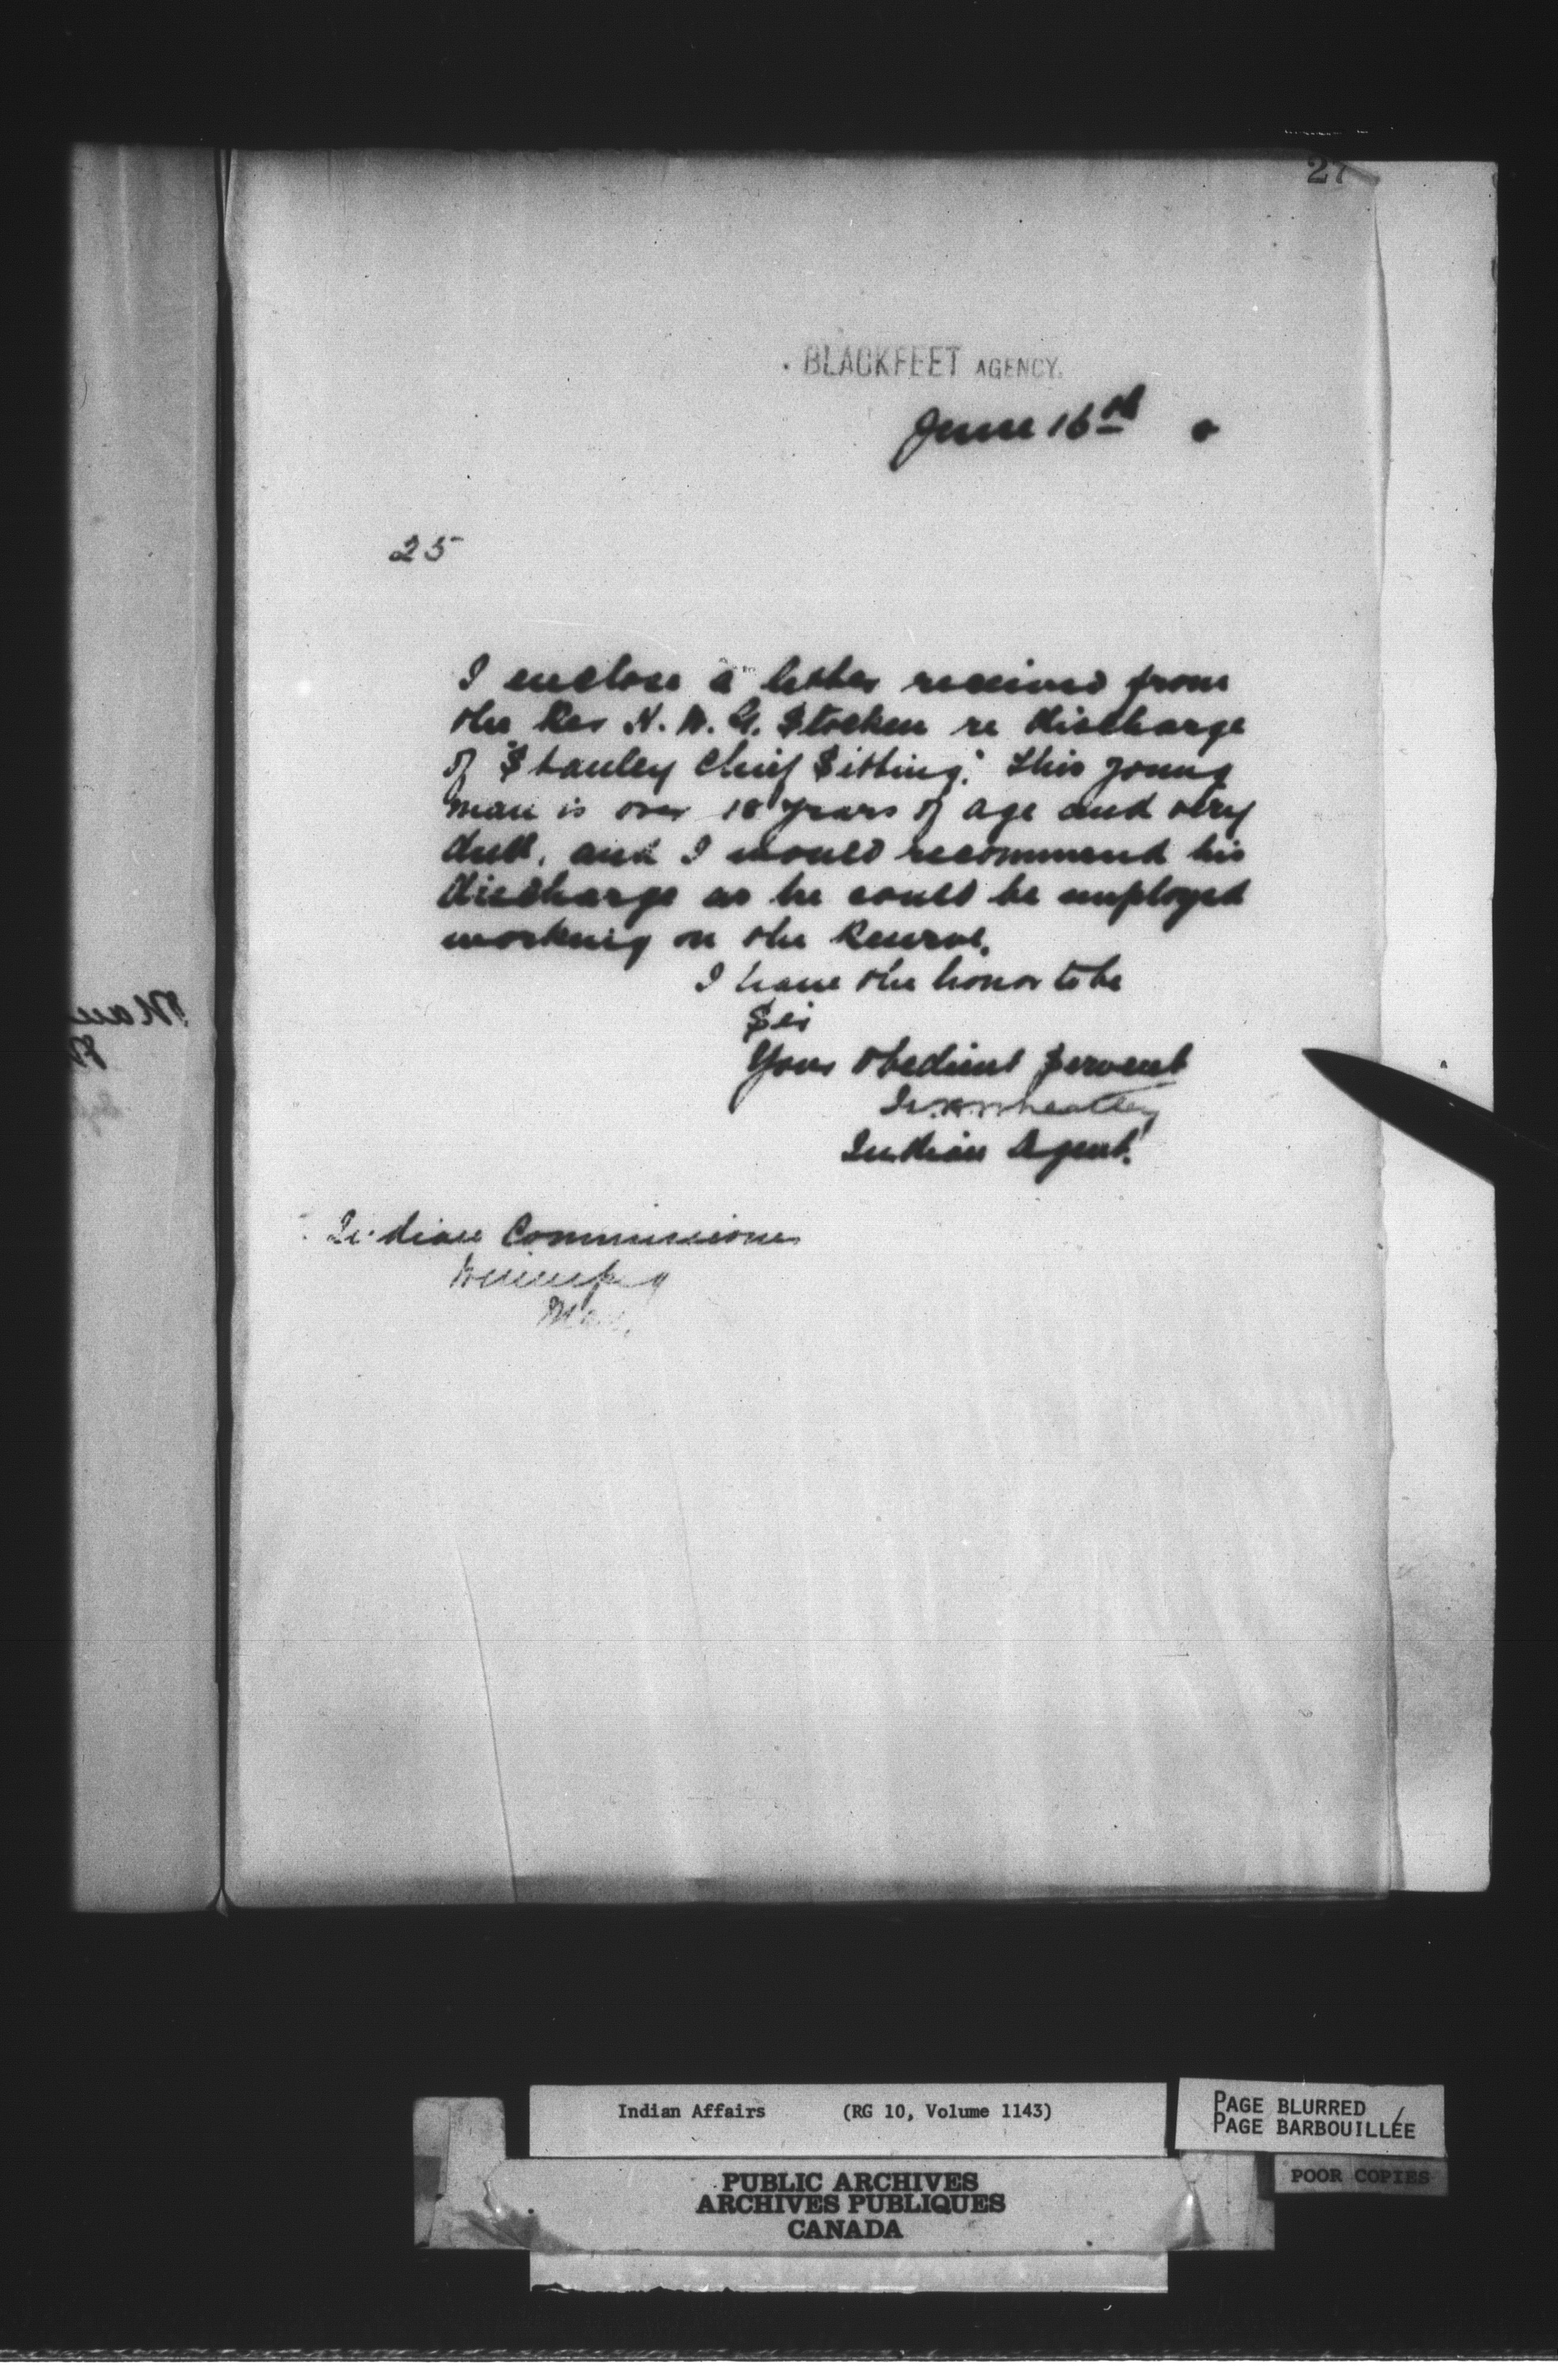 27
BLACKFEET AGENCY.
June 16th
25
I enclose a letter received from
the Rev H. W. G. Stocken re discharge
of "Stanley Chief Sitting." This young
man is over 18 years of age and very
dull, and I would recommend his
discharge as he could be employed
working on the Reserve.
I have the honor to be
Sir
Your obedient Servant
Wheatley
Indian Agent.
Indian Commissioner
Winnipeg
Man.
Indian Affairs (RG 10, Volume 1143)
PAGE BLURRED
PAGE BARBOUILLÉE
POOR COPIES
PUBLIC ARCHIVES
ARCHIVES PUBLIQUES
CANADA